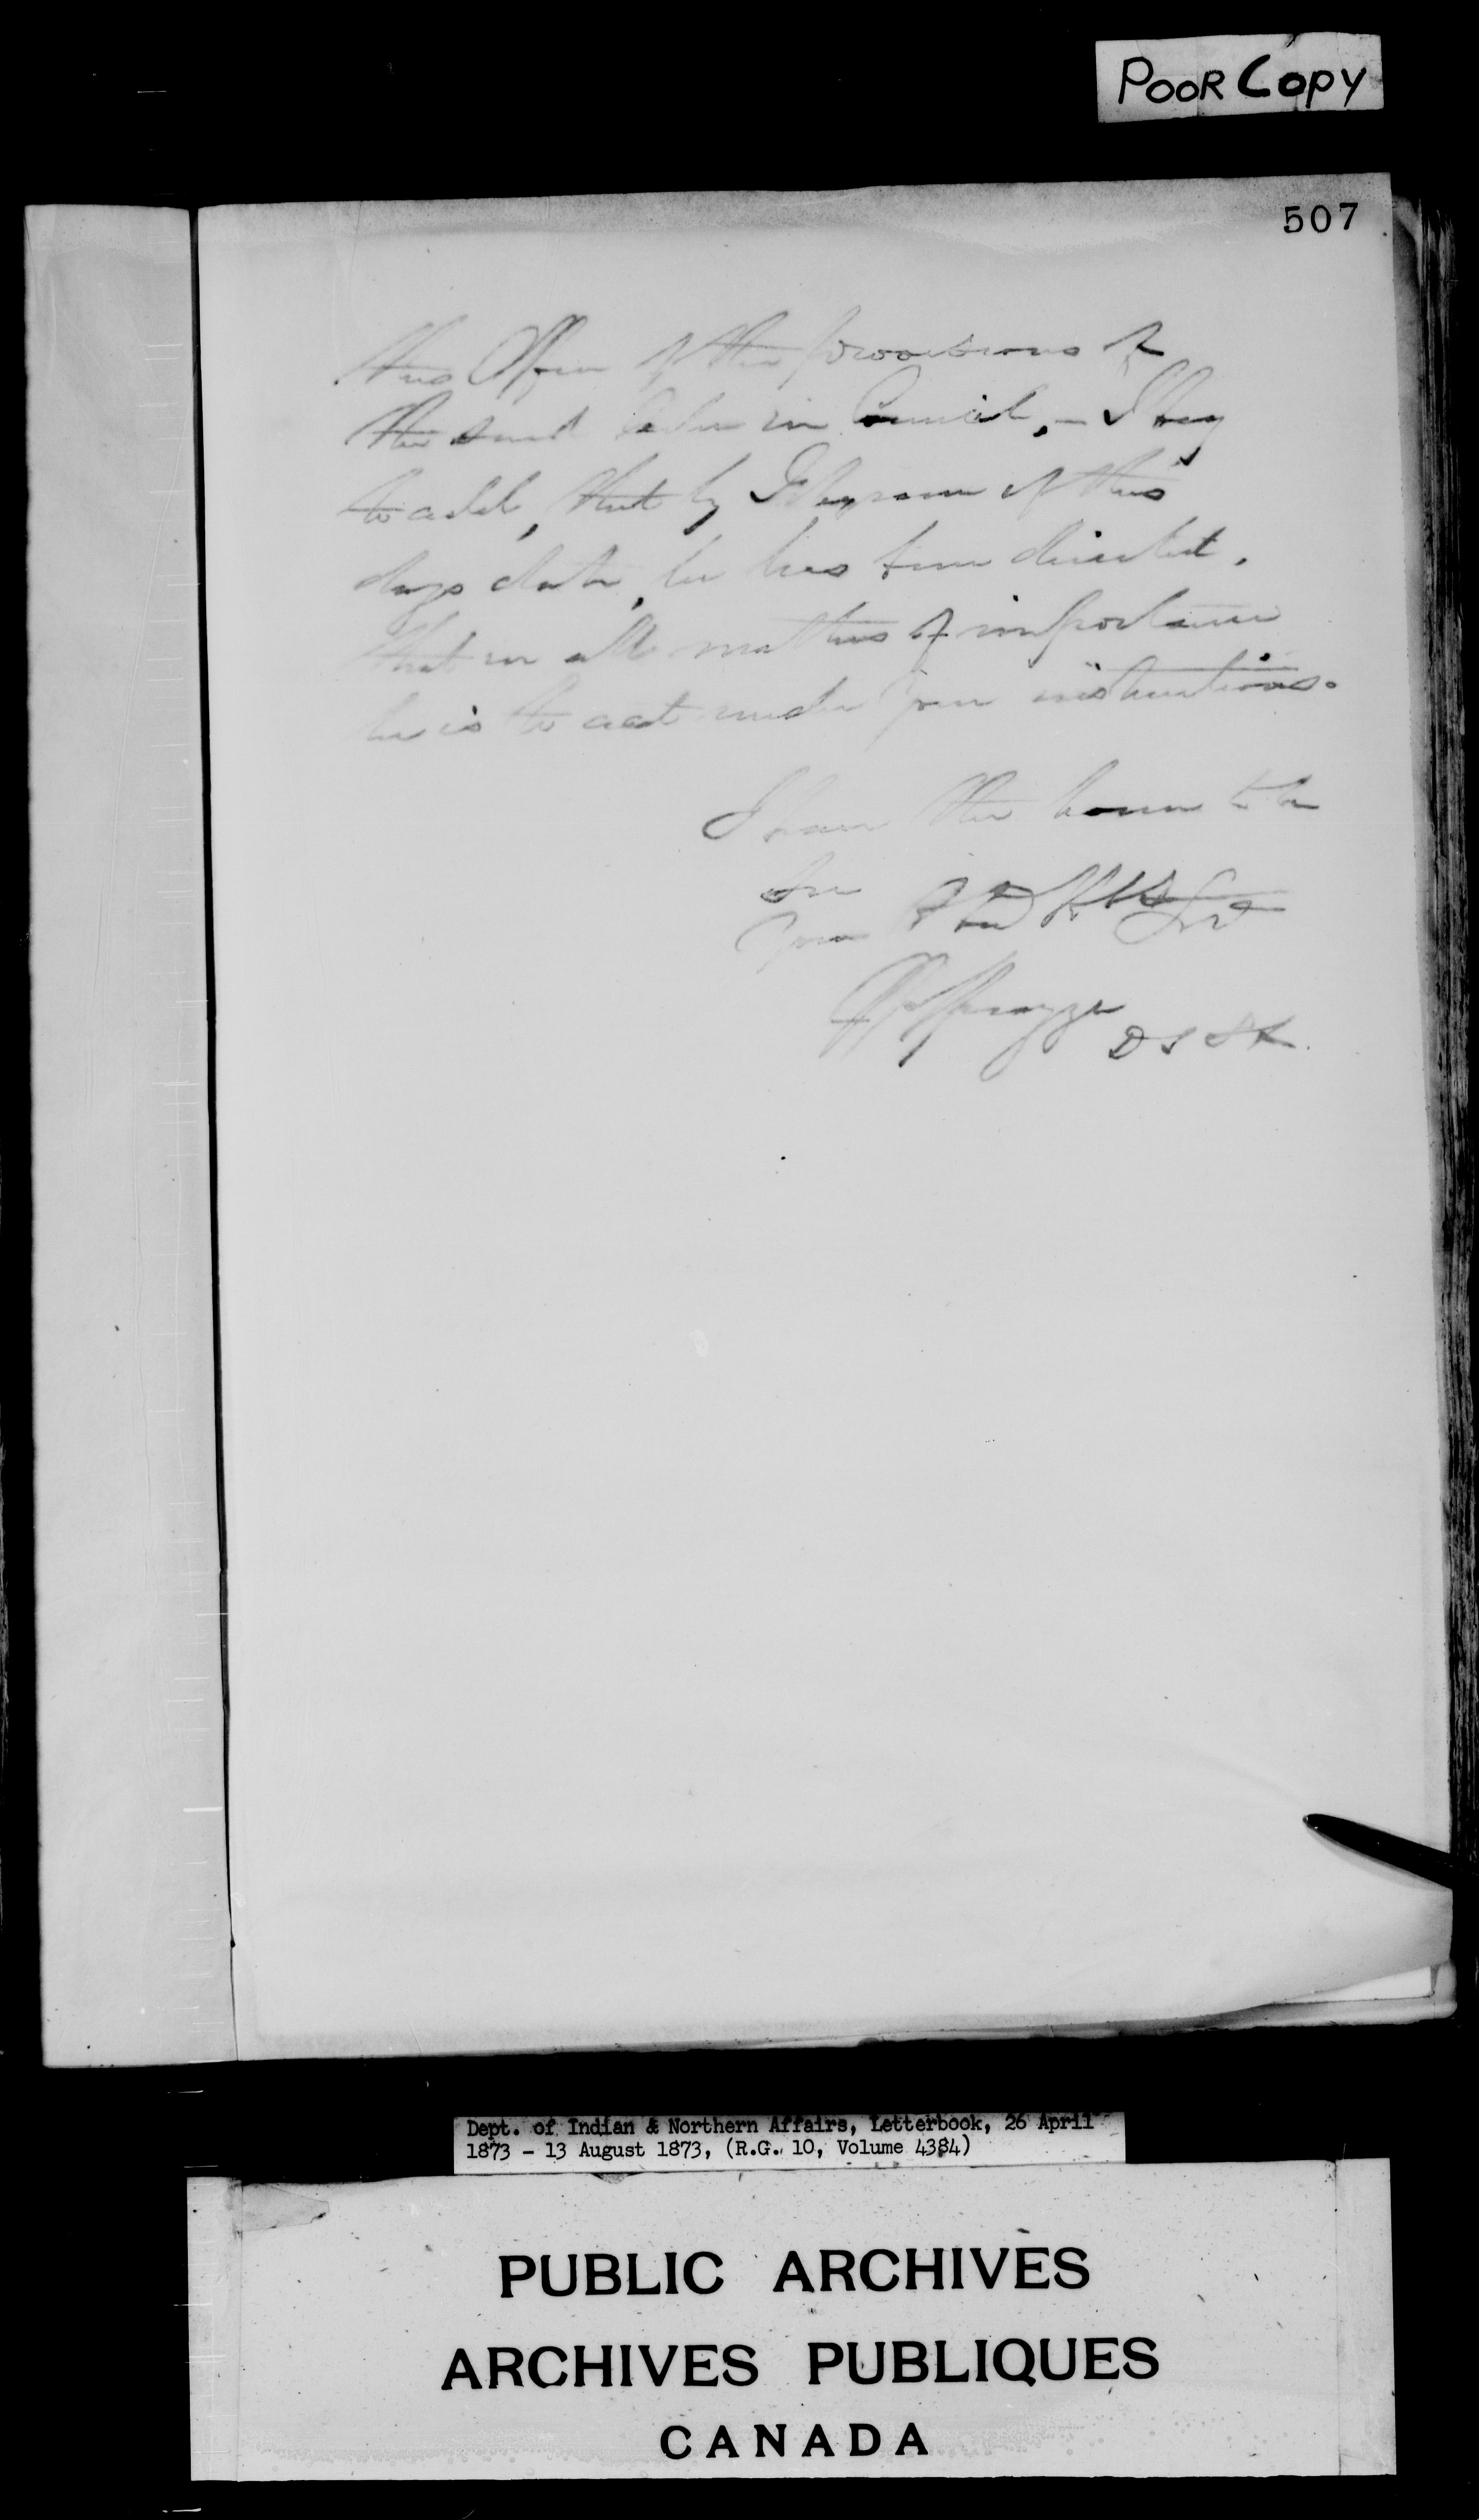 POOR COPY
507
this Office of the provisions of
the said Order in Council, - I beg
to add, that by Telegram of this
days date, he has been directed,
that in all matters of importance
he is to act under your instructions.
I have the honor to be
Sir
Your
Spragge
D S I A.
Dept. of Indian & Northern Affairs, Letterbook, 26 April
1873 - 13 August 1873, (R.G. 10, Volume 4384)
PUBLIC ARCHIVES
ARCHIVES PUBLIQUES
CANADA